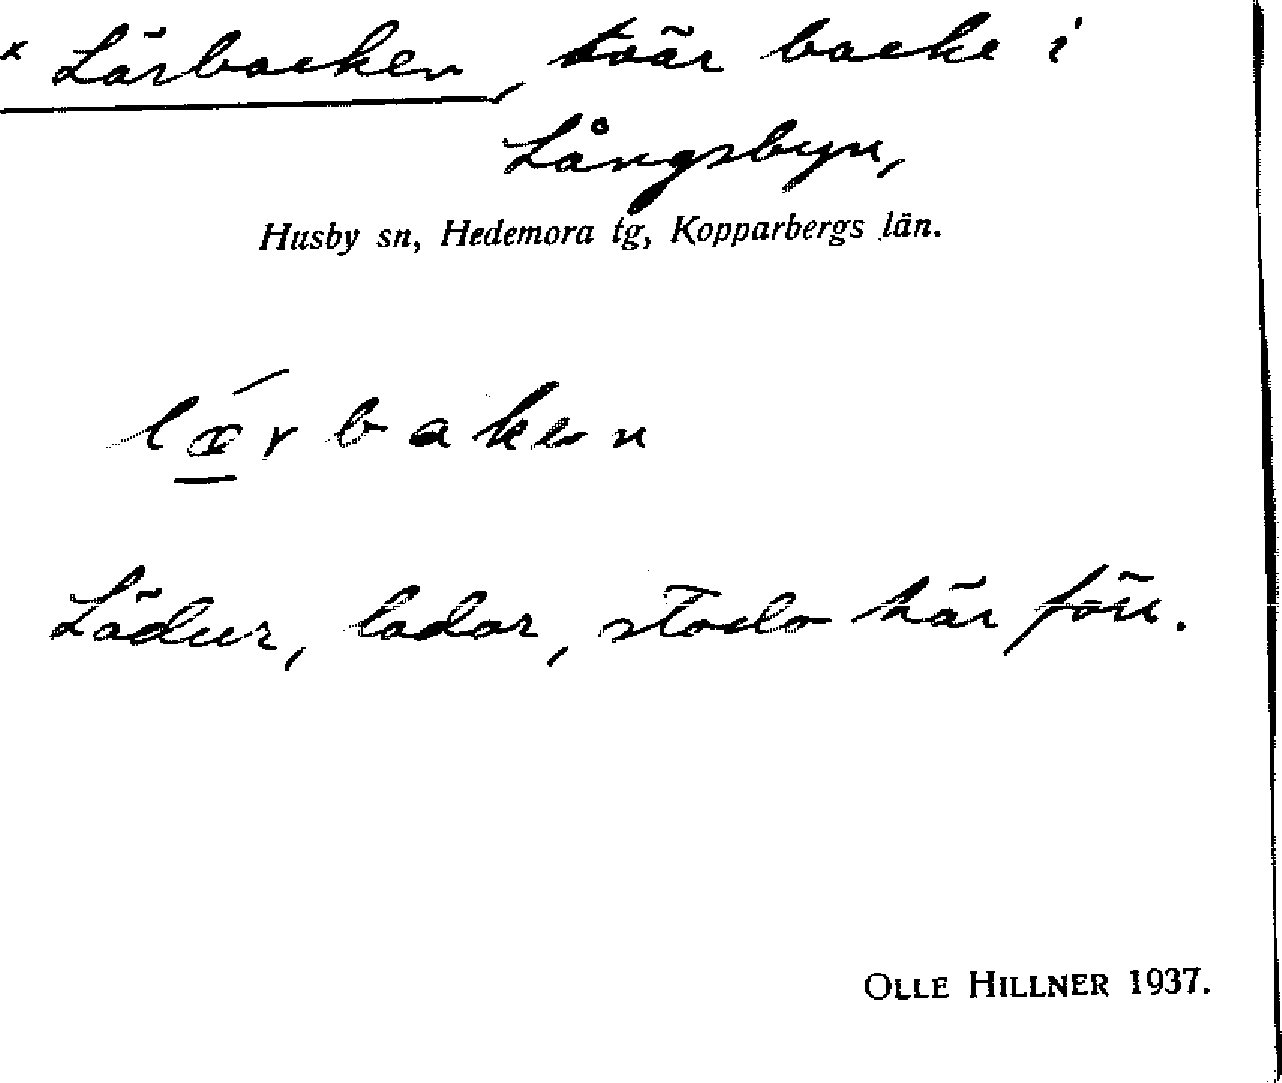 x Lärbacken, tvär backe i
Långsbyn,
Husby sn, Hedemora tg, Kopparbergs län.
lǽrbaken
Lädur, lador, stodo här förr.
OLLE HILLNER 1937.